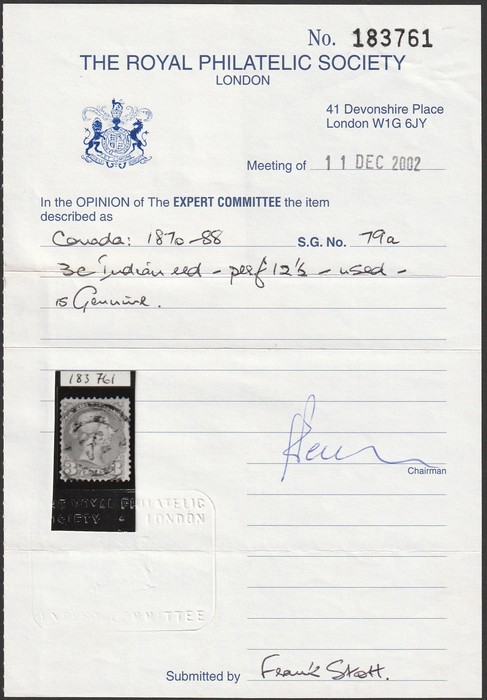 No. 183761
THE ROYAL PHILATELIC SOCIETY
LONDON
41 Devonshire Place
London W1G 6JY
Meeting of 11 DEC 2002
In the OPINION of The EXPERT COMMITTEE the item
described as
Canada: 1870-88 S.G. No. 79a
3c Indian red - perf 12½ - used -
is Genuine.
183 761
3 3
ROYAL PHILATELIC
SOCIETY LONDON
COMMITTEE
Chairman
Submitted by Frank Stott.